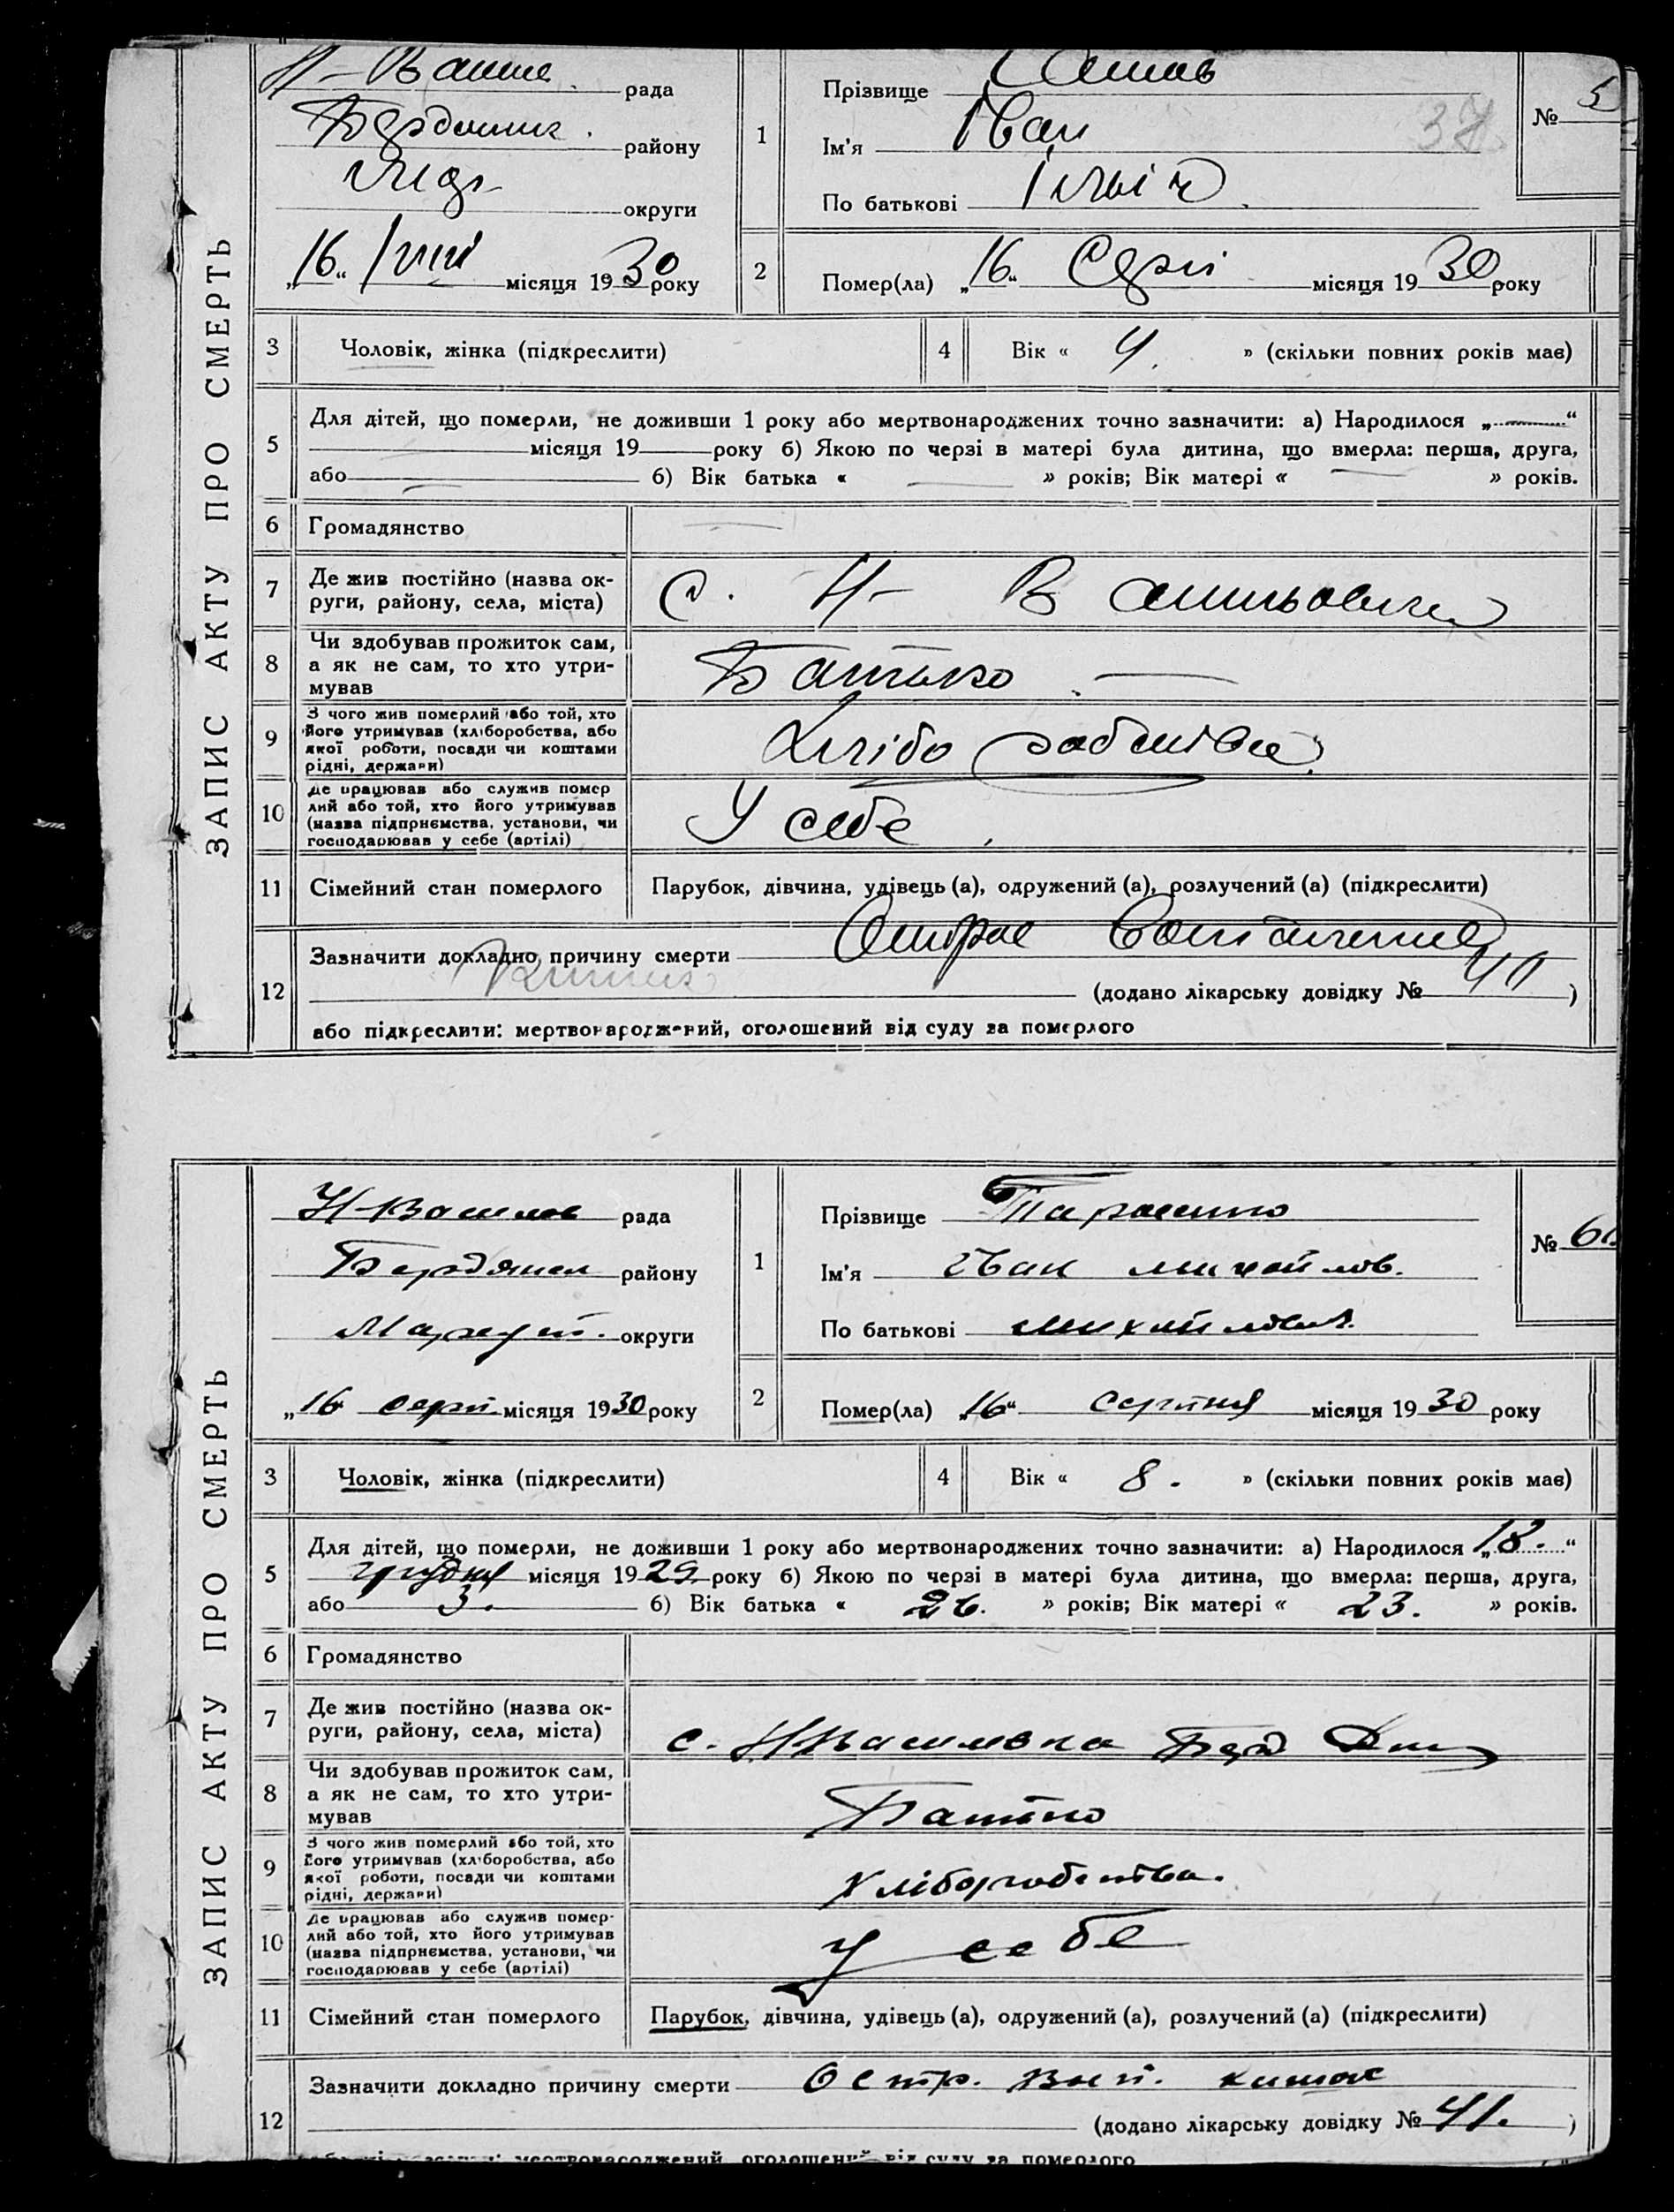 ЗАПИС АКТУ ПРО СМЕРТЬ
рада
району
округи
„16“ місяця 1930 року
1
Прізвище
Ім'я Іван
По батькові
37
№ 5
2
Помер(ла) „16“ Серп місяця 1930 року
3
Чоловік, жінка (підкреслити)
4
Вік « 4. » (скільки повних років має)
5
Для дітей, що померли, не доживши 1 року або мертвонароджених точно зазначити: а) Народилося „ “
місяця 19 року б) Якою по черзі в матері була дитина, що вмерла: перша, друга,
або б) Вік батька « » років; Вік матері « » років.
6
Громадянство
7
Де жив постійно (назва ок-
руги, району, села, міста)
с. Н-
8
Чи здобував прожиток сам,
а як не сам, то хто утри-
мував
Батько
9
З чого жив померлий або той, хто
його утримував (хліборобства, або
якої роботи, посади чи коштами
рідні, держави)
Хліборобства
10
Де працював або служив помер
лий або той, хто його утримував
(назва підприємства, установи, чи
господарював у себе (артілі)
У себе
11
Сімейний стан померлого
Парубок, дівчина, удівець (а), одружений (а), розлучений (а) (підкреслити)
12
Зазначити докладно причину смерти
(додано лікарську довідку № )
або підкреслити: мертвонароджений, оголошений від суду за померлого
ЗАПИС АКТУ ПРО СМЕРТЬ
Н-Василів рада
Бердянськ району
Маріуп. округи
„16 серп місяця 1930 року
1
Прізвище
Ім'я Іван Михайлов.
По батькові Михайлович
№ 6
2
Помер(ла) „16“ серпня місяця 1930 року
3
Чоловік, жінка (підкреслити)
4
Вік « 8. » (скільки повних років має)
5
Для дітей, що померли, не доживши 1 року або мертвонароджених точно зазначити: а) Народилося „18.“
грудня місяця 1929 року б) Якою по черзі в матері була дитина, що вмерла: перша, друга,
або 3. б) Вік батька « 26. » років; Вік матері « 23. » років.
6
Громадянство
7
Де жив постійно (назва ок-
руги, району, села, міста)
с. Н Василівка Берд
8
Чи здобував прожиток сам,
а як не сам, то хто утри-
мував
Батько
9
З чого жив померлий або той, хто
його утримував (хліборобства, або
якої роботи, посади чи коштами
рідні, держави)
Хліборобства.
10
Де працював або служив помер-
лий або той, хто його утримував
(назва підприємства, установи, чи
господарював у себе (артілі)
У себе
11
Сімейний стан померлого
Парубок, дівчина, удівець (а), одружений (а), розлучений (а) (підкреслити)
12
Зазначити докладно причину смерти Остр. кишок
(додано лікарську довідку № 41. )
мертвонароджений, оголошений від суду за померлого